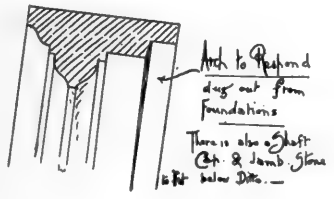 Arch to Respond
dug out from
Foundations
There is also a Shaft
Cap. & Jamb. Stone
to fit below Ditto. —